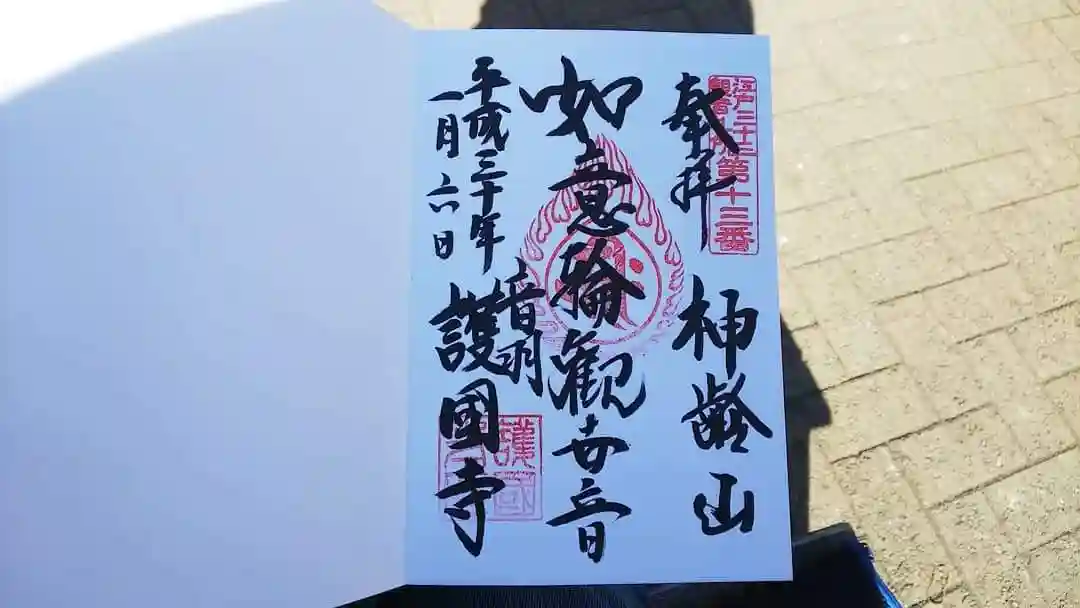 江戸三十三
観音札所
第十三番
奉拝
神齢山
如意輪觀世音
平成三十年
一月六日
音羽
護國寺
護國寺